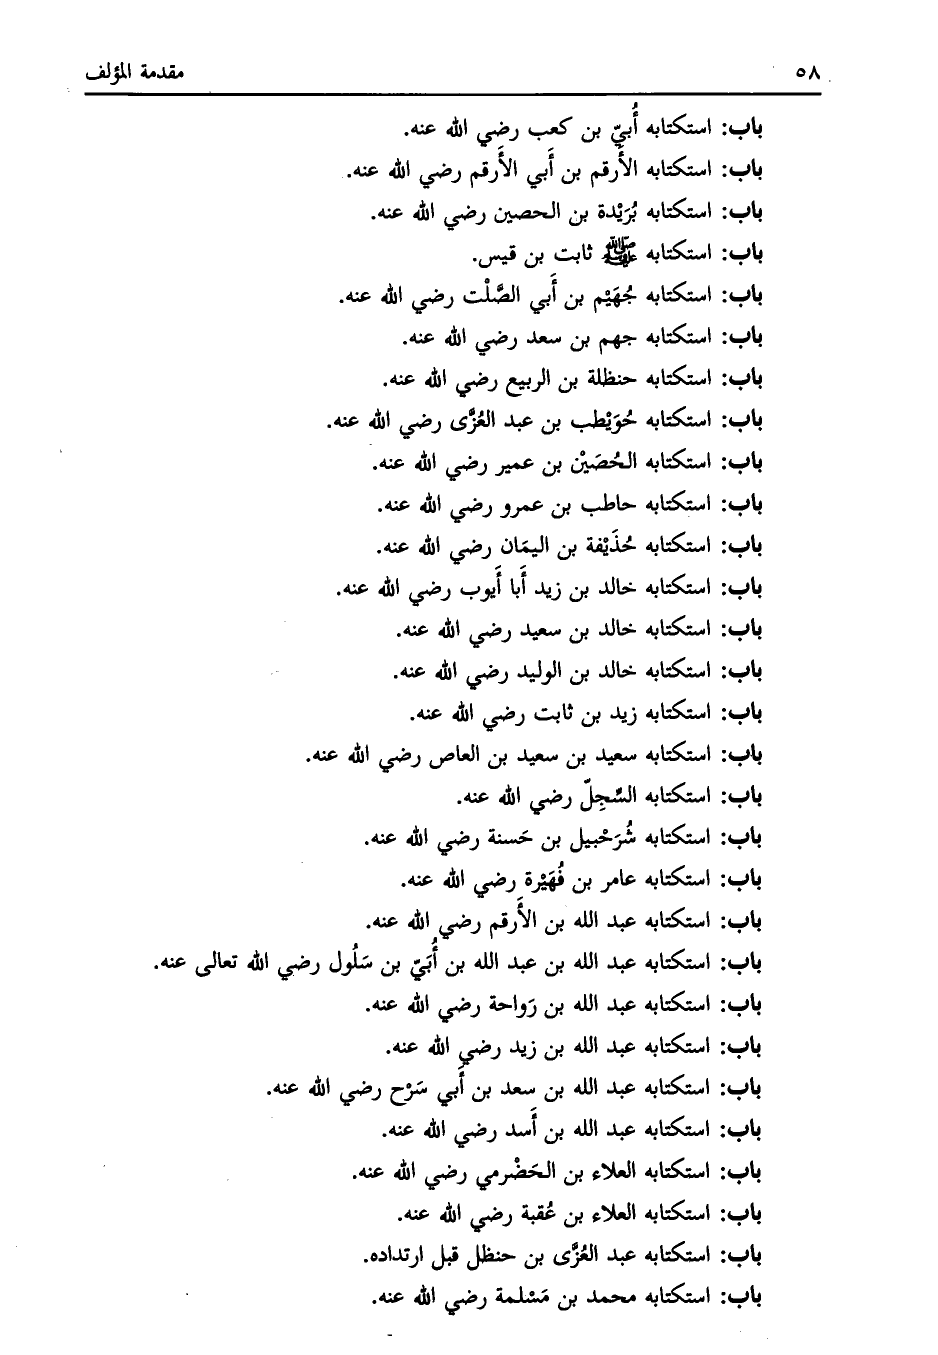 ٥٨ مقدمة المؤلف
باب: استكتابه أُبيّ بن كعب رضي الله عنه.
باب: استكتابه الأَرقم بن أَبي الأَرقم رضي الله عنه.
باب: استكتابه بُرَيْدة بن الحصين رضي الله عنه.
باب: استكتابه ﷺ ثابت بن قيس.
باب: استكتابه جُهَيْم بن أَبي الصَّلْت رضي الله عنه.
باب: استكتابه جهم بن سعد رضي الله عنه.
باب: استكتابه حنظلة بن الربيع رضي الله عنه.
باب: استكتابه حُوَيْطب بن عبد العُزَّى رضي الله عنه.
باب: استكتابه الحُصَيْن بن عمير رضي الله عنه.
باب: استكتابه حاطب بن عمرو رضي الله عنه.
باب: استكتابه حُذَيْفة بن اليمَان رضي الله عنه.
باب: استكتابه خالد بن زيد أَبا أَيوب رضي الله عنه.
باب: استكتابه خالد بن سعيد رضي الله عنه.
باب: استكتابه خالد بن الوليد رضي الله عنه.
باب: استكتابه زيد بن ثابت رضي الله عنه.
باب: استكتابه سعيد بن سعيد بن العاص رضي الله عنه.
باب: استكتابه السِّجِلّ رضي الله عنه.
باب: استكتابه شُرَحْبيل بن حَسنة رضي الله عنه.
باب: استكتابه عامر بن فُهَيْرة رضي الله عنه.
باب: استكتابه عبد الله بن الأَرقم رضي الله عنه.
باب: استكتابه عبد الله بن عبد الله بن أُبَيّ بن سَلُول رضي الله تعالى عنه.
باب: استكتابه عبد الله بن رَواحة رضي الله عنه.
باب: استكتابه عبد الله بن زيد رضي الله عنه.
باب: استكتابه عبد الله بن سعد بن أَبي سَرْح رضي الله عنه.
باب: استكتابه عبد الله بن أَسد رضي الله عنه.
باب: استكتابه العلاء بن الحَضْرمي رضي الله عنه.
باب: استكتابه العلاء بن عُقبة رضي الله عنه.
باب: استكتابه عبد العُزَّى بن حنظل قبل ارتداده.
باب: استكتابه محمد بن مَسْلمة رضي الله عنه.